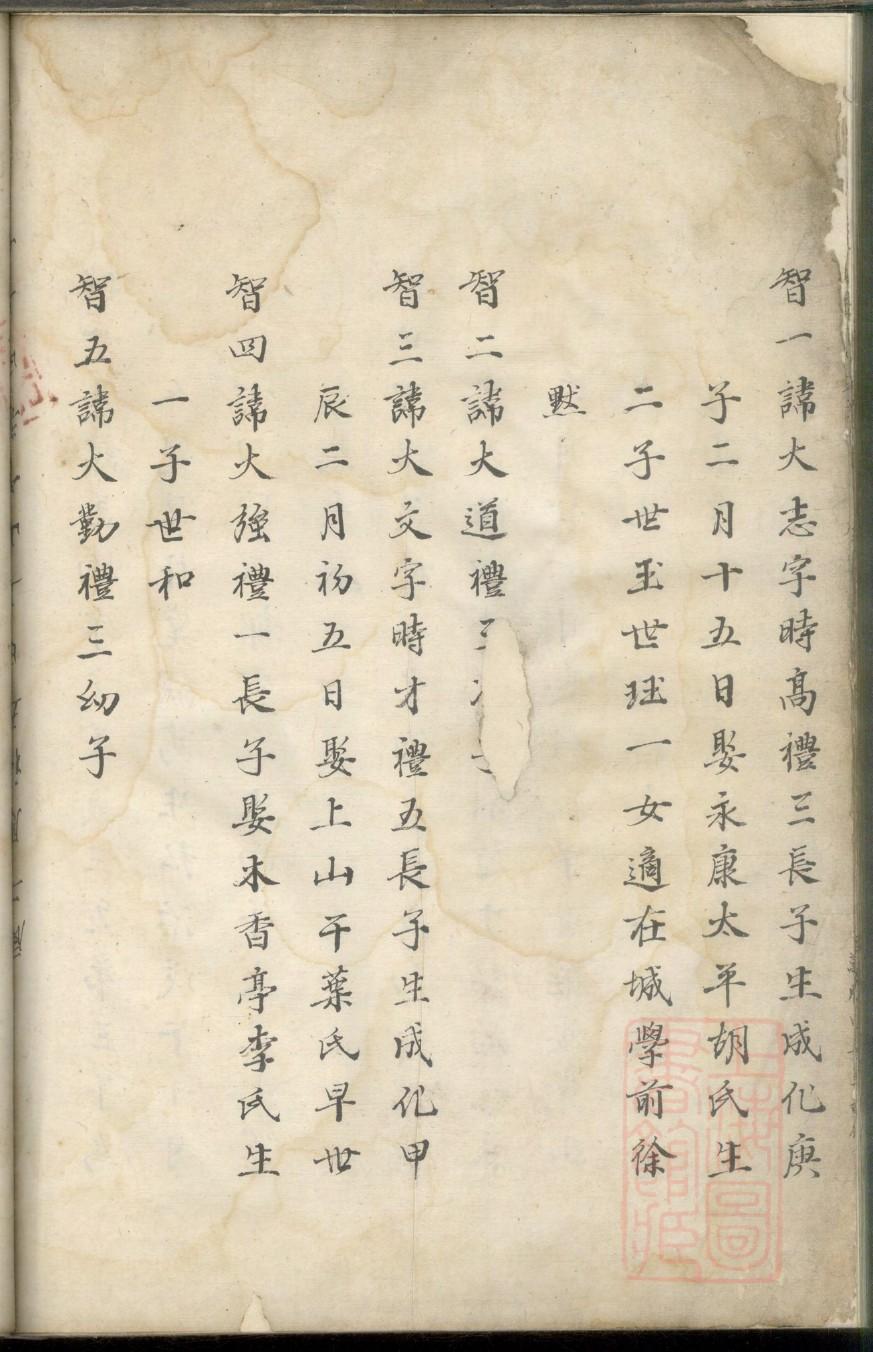 智一諱大志字時髙禮三長子生成化庚
子二月十五日娶永康太平胡氏生
二子世玉世珏一女適在城學前徐
默
智二諱大道禮三次子
智三諱大文字時才禮五長子生成化甲
辰二月初五日娶上山干葉氏早世
智四諱大強禮一長子娶木香亭李氏生
一子世和
智五諱大勤禮三幼子
上海圖書館藏